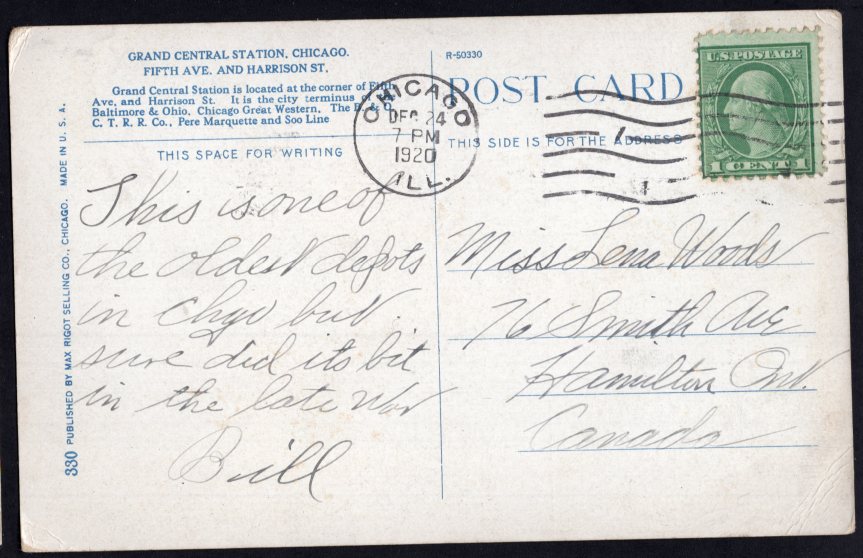 GRAND CENTRAL STATION, CHICAGO.
FIFTH AVE. AND HARRISON ST.
Grand Central Station is located at the corner of Fifth
Ave. and Harrison St. It is the city terminus of
Baltimore & Ohio, Chicago Great Western, The B. & O.
C. T. R. R. Co., Pere Marquette and Soo Line
THIS SPACE FOR WRITING
This is one of
the oldest depots
in Chgo but
sure did its bit
in the late War
Bill
330 PUBLISHED BY MAX RIGOT SELLING CO., CHICAGO. MADE IN U. S. A.
R-50330
POST CARD
THIS SIDE IS FOR THE ADDRESS
CHICAGO
DEC 24
7 PM
1920
ILL.
U.S. POSTAGE
1 CENT 1
Miss Lena Woods
76 Smith Ave
Hamilton Ont.
Canada